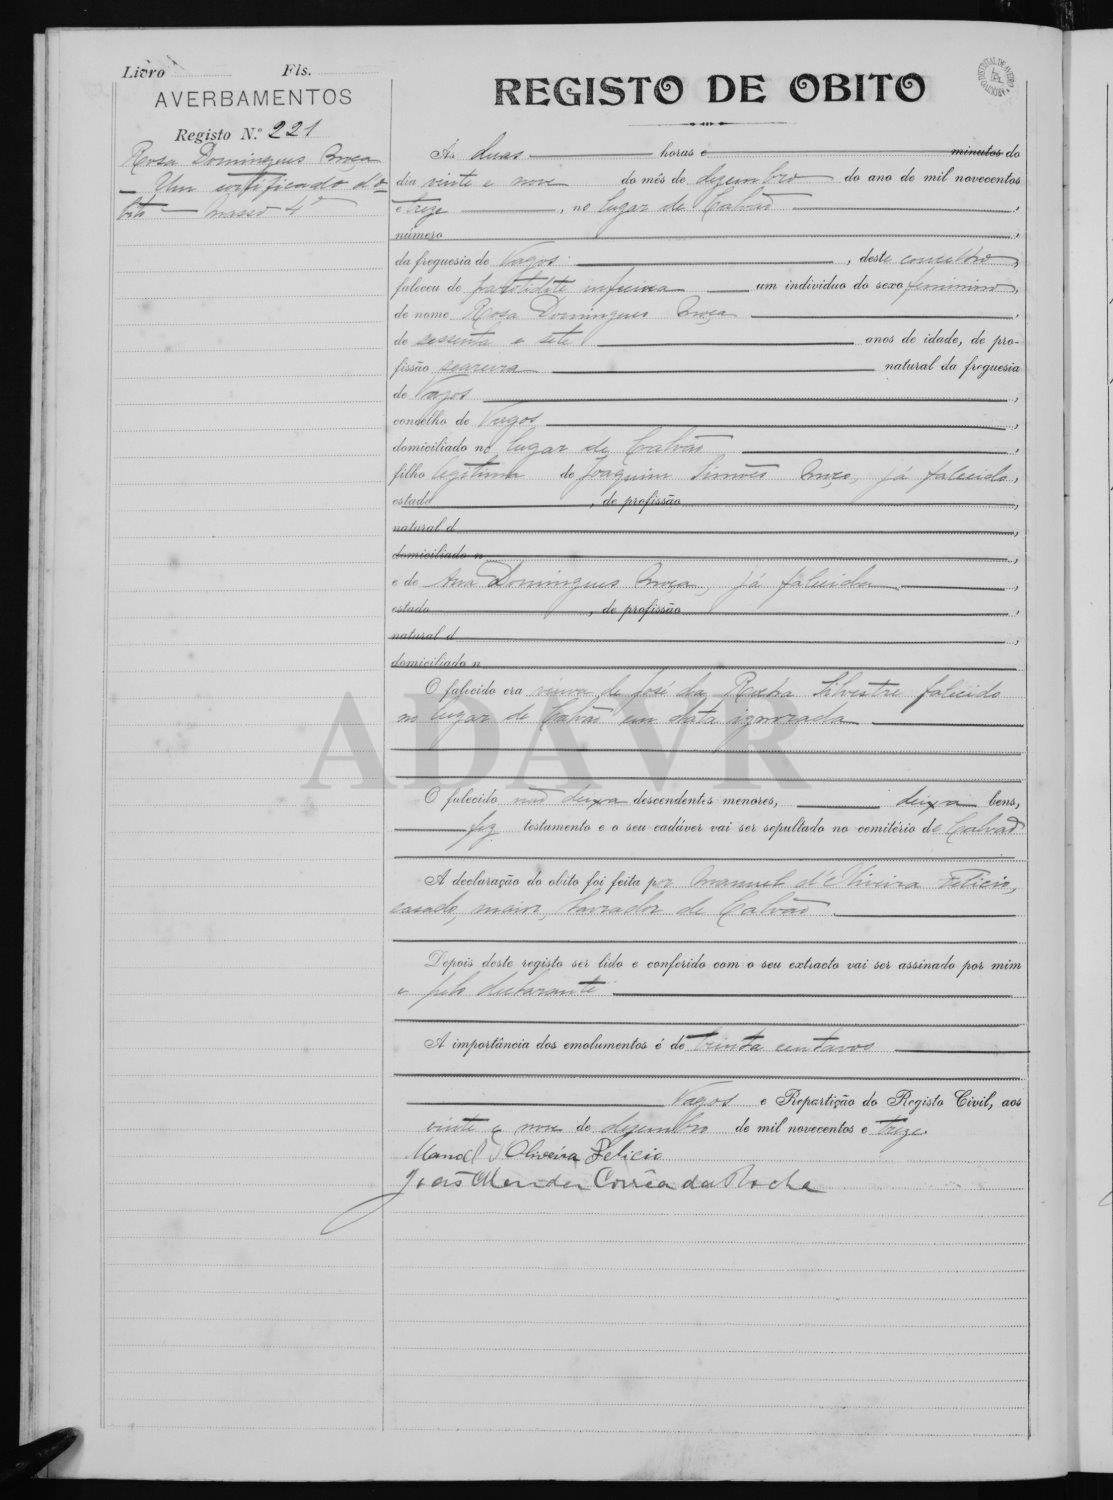 Livro Fls.
AVERBAMENTOS
Registo N.º 221
Rosa Domingues
— Um certificado d'o-
bito — Masso 4º
REGISTO DE OBITO
Ás duas horas e minutos do
dia vinte e nove do mês de dezembro do ano de mil novecentos
e treze, no lugar de Calvão,
número,
da freguesia de Vagos, deste concelho,
faleceu de parotidite um individuo do sexo feminino,
de nome Rosa Domingues,
de sessenta e sete anos de idade, de pro-
fissão seareira natural da freguesia
de Vagos,
concelho de Vagos,
domiciliado no lugar de Calvão,
filho legitima de Joaquim Simões, já falecido,
estado, de profissão,
natural d,
domiciliado n,
e de Ana Domingues, já falecida,
estado, de profissão,
natural d,
domiciliado n
O falecido era viuva de José da Rocha Silvestre falecido
no lugar de Calvão em data ignorada
O falecido não deixa descendentes menores, deixa bens,
fez testamento e o seu cadáver vai ser sepultado no cemitério de Calvão
A declaração do obito foi feita por Manuel d'Oliveira Felicio,
casado, maior, lavrador de Calvão
Depois deste registo ser lido e conferido com o seu extracto vai ser assinado por mim
e pelo declarante
A importância dos emolumentos é de trinta centavos
Vagos e Repartição do Registo Civil, aos
vinte e nove de dezembro de mil novecentos e treze.
Manoel d'Oliveira Felicio
João Mendes Corrêa da Rocha
ADAVR